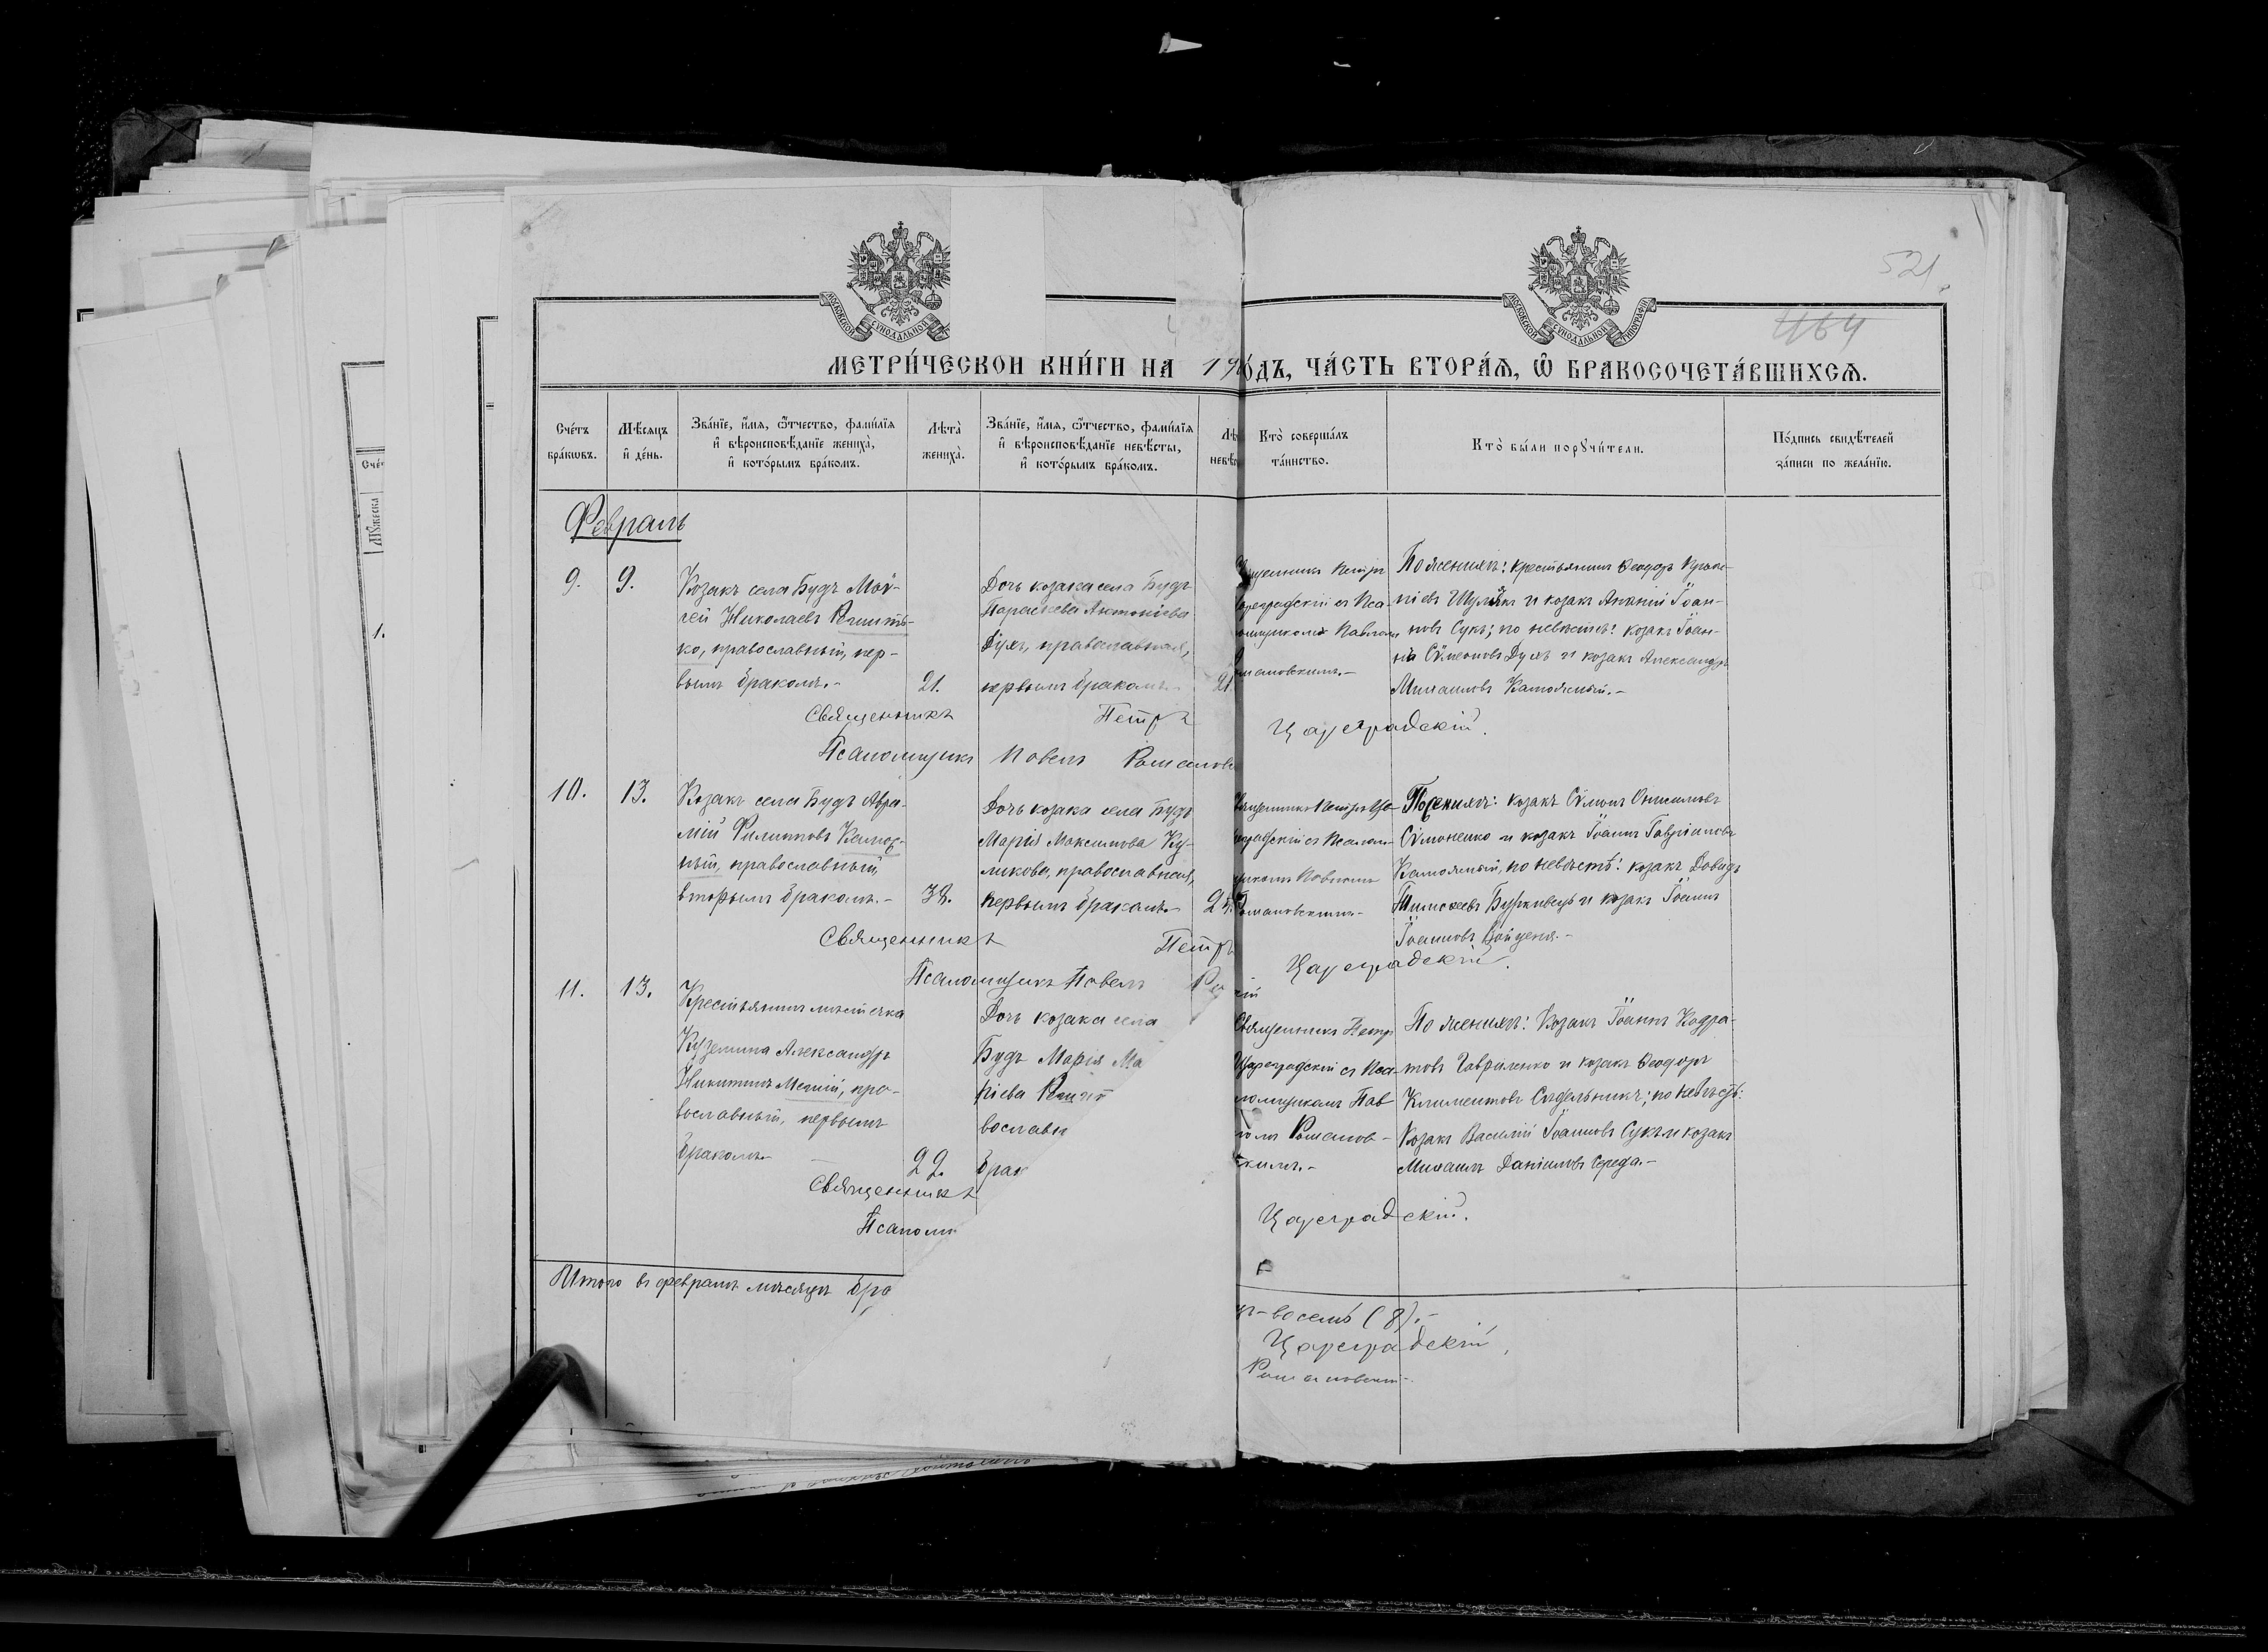 521
464
МОСКОВСКОЙ СѴНОДАЛЬНОЙ
МОСКОВСКОЙ СѴНОДАЛЬНОЙ ТИПОГРАФІИ
МЕТРИ́ЧЕСКОЙ КНИ́ГИ НА 19
О́ДЪ, ЧА́СТЬ ВТОРА́Ѧ, Ѡ҆ БРАКОСОЧЕТА́ВШИХСѦ.
Сче́тъ
бра́кѡвъ.
Мѣ́сѧцъ
и҆ де́нь.
Зва́нїе, и҆́мѧ, ѻ҆́тчество, фами́лїѧ
и҆ вѣроисповѣ́данїе жениха̀,
и҆ кото́рымъ бра́комъ.
Лѣта̀
жениха̀.
Зва́нїе, и҆́мѧ, ѻ҆́тчество, фами́лїѧ
и҆ вѣроисповѣ́данїе невѣ́сты,
и҆ кото́рымъ бра́комъ.
Лѣ
невѣ
Кто̀ соверша́лъ
та́инство.
Кто̀ бы́ли порꙋчи́тели.
По́дпись свидѣ́телей
за́писи по жела́нїю.
Февраль
9.
9.
Козакъ села Будъ Мой-
сей Николаевъ
ко, православный, пер-
вымъ бракомъ.-
21.
Дочь козака села Будъ
Параскева Антоніева
Духъ, православная,
первымъ бракомъ.-
21.
Петръ
Цареградскій съ Пса-
ломщикомъ Павломъ
По женихѣ: крестьянинъ Ѳеодоръ
Шуляк и козакъ Іоан-
новъ Сукъ; по невѣстѣ: козакъ Іоан-
Сѵмеоновъ Духъ и козакъ Александръ
Михаиловъ Камояный.-
Священникъ Петръ Цареградскій.
Псаломщикъ Павелъ Романовс
10.
13.
Козакъ села Будъ Авра-
мій Филипповъ
ный, православный,
вторымъ бракомъ.-
Дочь козака села Будъ
Марія Максимова Ку-
ликова, православная,
первымъ бракомъ.-
Священникъ Петръ Ца-
реградскій съ Псалом-
щикомъ Павломъ
Романовскимъ.-
По женихѣ: козакъ Сѵмонъ Онисимовъ
Сѵмоненко и козакъ Іоаннъ Гавріиловъ
Камояный, по невѣстѣ: козакъ Давидъ
Тимоѳеевъ и козакъ Іоаннъ
Іоанновъ
Священникъ Петръ Цареградскій.
Псаломщикъ Павелъ Ро
кій
11.
13.
Крестьянинъ мѣстечка
Куземина Александръ
Никитинъ, пра-
вославный, первымъ
бракомъ.-
22.
Дочь козака села
Будъ Марія Ма
кіева
вославн
брак
Священникъ Петръ
Цареградскій съ Пса-
ломщикомъ Пав
ломъ Романов-
скимъ.-
По женихѣ: Козакъ Іоаннъ Кодра-
товъ Гавриленко и козакъ Ѳеодоръ
Климентовъ Сѣдельникъ; по невѣстѣ:
Козакъ Василій Іоанновъ Сукъ и козакъ
Михаилъ Даніиловъ Середа.-
Священникъ
Цареградскій.
Псалом
Итого въ февралѣ мѣсяцѣ бра
въ-восемь (8).-
Цареградскій,
Романовскій-